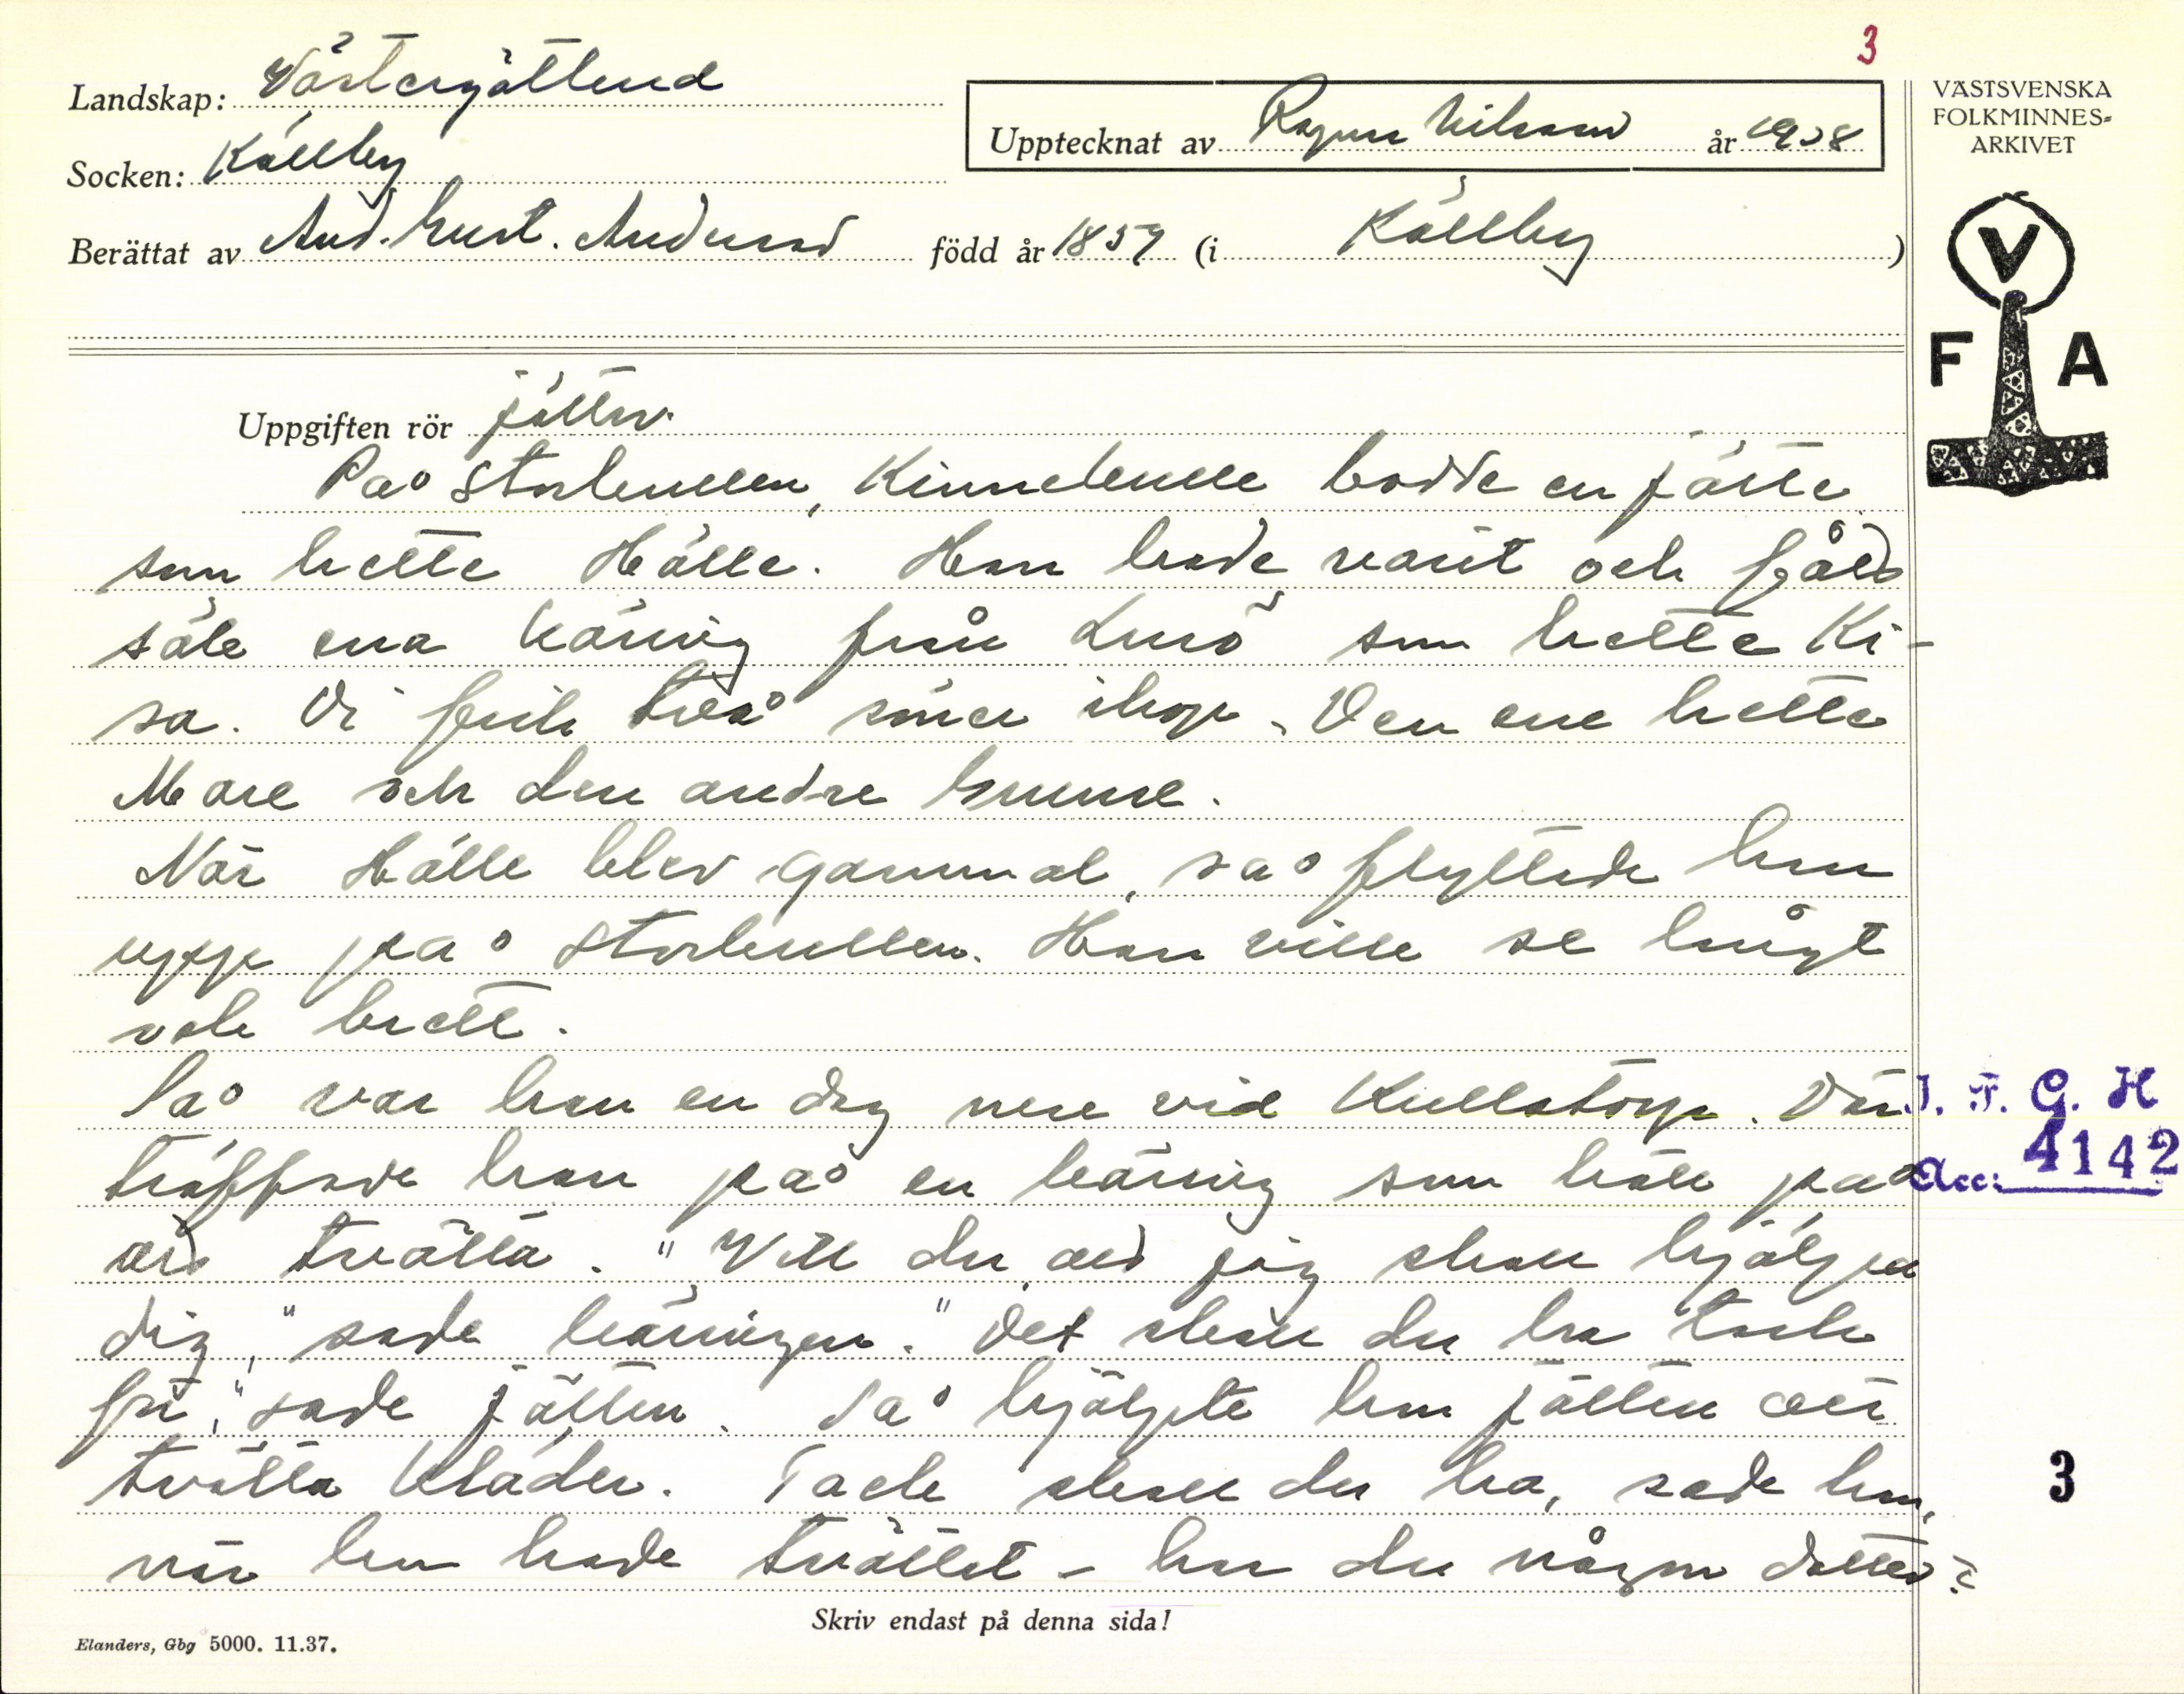 3
Landskap: Västergötland
VÄSTSVENSKA
FOLKMINNES=
ARKIVET
Upptecknat av Ragnar Nilsson år 1938
Socken: Källby
Berättat av And. Gust. Andersson född år 1859 (i Källby)
V
F A
Uppgiften rör jättar.
På Storkullen, Kinnekulle bodde en jätte
som hette Hälle. Han hade varit och
säle ena käring från som hette Ki-
sa. Di fick två söner ihop. Den ene hette
Mase och den andre
När Hälle blev gammal, så flyttade han
upp på Storkullen. Han ville se långt
och brett.
Så var han en dag nere vid Kullatorp. Där
träffade han på en käring som höll på
att tvätta. "Vill du att jag skall hjälpa
dig," sade käringen. "Det skall du ha tack
för," sade jätten. Så hjälpte han jätten att
tvätta kläder. Tack skall du ha, sade han,
när han hade tvättat – har du någon dotter?
I. F. G. H
Acc: 4142
3
Skriv endast på denna sida!
Elanders, Gbg 5000. 11.37.